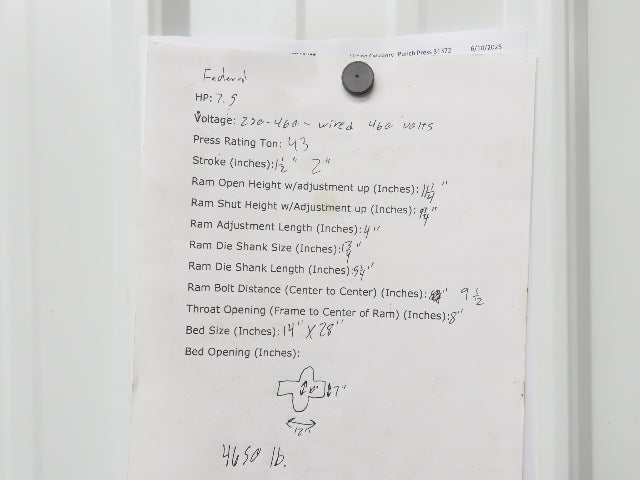 Punch Press 31372 6/10/2025
Federal
HP: 7.5
Voltage: 220-460 - wired 460 volts
Press Rating Ton: 43
Stroke (inches): 1 1/2" 2"
Ram Open Height w/adjustment up (Inches):
Ram Shut Height w/Adjustment up (Inches):
Ram Adjustment Length (Inches): 4"
Ram Die Shank Size (Inches):
Ram Die Shank Length (Inches):
Ram Bolt Distance (Center to Center) (Inches): 9 1/2
Throat Opening (Frame to Center of Ram) (Inches): 8"
Bed Size (Inches): 14" X 28"
Bed Opening (Inches):
7"
12"
4650 lb.